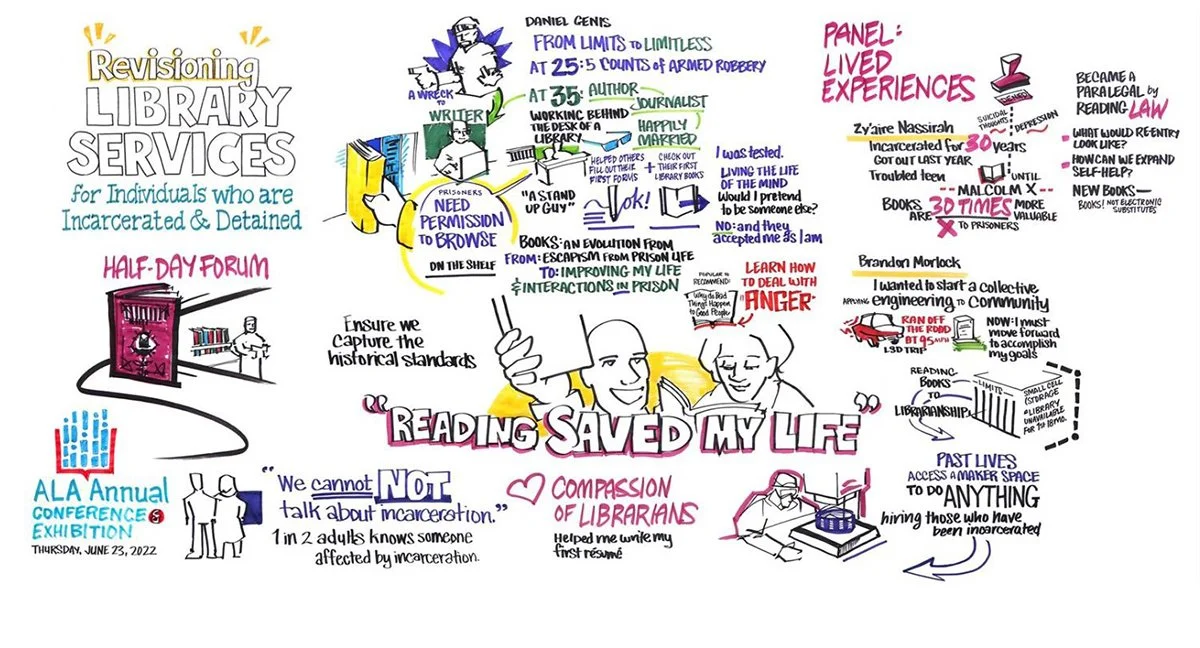 Revisioning
LIBRARY
SERVICES
for Individuals who are
Incarcerated & Detained
HALF-DAY FORUM
ALA Annual
CONFERENCE &
EXHIBITION
THURSDAY, JUNE 23, 2022
DANIEL GENIS
FROM LIMITS TO LIMITLESS
AT 25: 5 COUNTS OF ARMED ROBBERY
A WRECK
TO
WRITER
AT 35: AUTHOR
JOURNALIST
HAPPILY
MARRIED
WORKING BEHIND
THE DESK OF A
LIBRARY
PRISONERS
NEED
PERMISSION
TO BROWSE
ON THE SHELF
"A STAND
UP GUY"
HELPED OTHERS
FILL OUT THEIR
FIRST FORMS
+
CHECK OUT
THEIR FIRST
LIBRARY BOOKS
ok!
I was tested.
LIVING THE LIFE
OF THE MIND
Would I pretend
to be someone else?
NO: and they
accepted me as I am
BOOKS: AN EVOLUTION FROM
FROM: ESCAPISM FROM PRISON LIFE
TO: IMPROVING MY LIFE
& INTERACTIONS IN PRISON
POPULAR TO
RECOMMEND:
Why do Bad
Things Happen
to Good People
LEARN HOW
TO DEAL WITH
ANGER
Ensure we
capture the
historical standards
"READING SAVED MY LIFE"
"We cannot NOT
talk about incarceration."
1 in 2 adults knows someone
affected by incarceration.
COMPASSION
OF LIBRARIANS
Helped me write my
first résumé
PANEL:
LIVED
EXPERIENCES
Zy'aire Nassirah
Incarcerated for 30 years
GOT OUT LAST YEAR
Troubled teen
DENIED
SUICIDAL
THOUGHTS
DEPRESSION
UNTIL
MALCOLM X
BOOKS
ARE
30 TIMES
MORE
VALUABLE
TO PRISONERS
BECAME A
PARALEGAL by
READING LAW
WHAT WOULD RE-ENTRY
LOOK LIKE?
HOW CAN WE EXPAND
SELF-HELP?
NEW BOOKS—
BOOKS! NOT ELECTRONIC
SUBSTITUTES
Brandon Morlock
I wanted to start a collective
APPLYING engineering TO community
RAN OFF
THE ROAD
AT 95 MPH
LSD TRIP
NOW: I must
move forward
to accomplish
my goals
READING
BOOKS
TO
LIBRARIANSHIP
LIMITS
SMALL CELL
(STORAGE
LIBRARY
UNAVAILABLE
FOR 1st 18 mo.
PAST LIVES
ACCESS A MAKER SPACE
TO DO ANYTHING
hiring those who have
been incarcerated